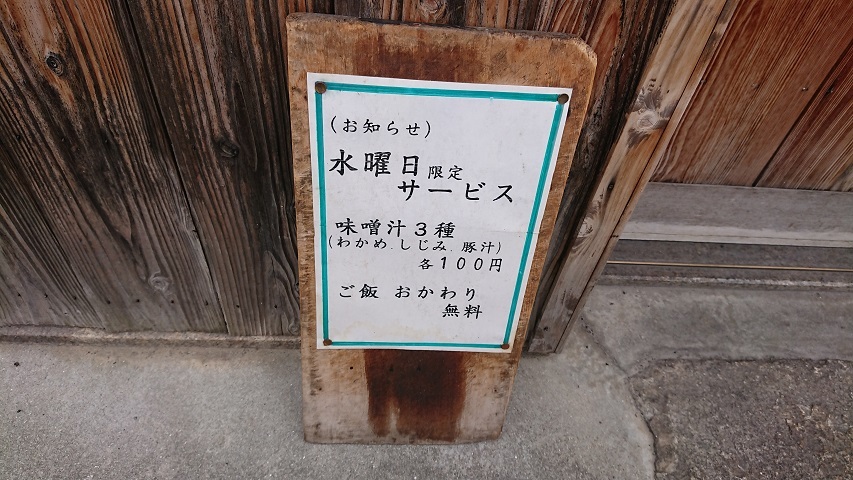 (お知らせ)
水曜日限定
サービス
味噌汁3種
(わかめ.しじみ.豚汁)
各100円
ご飯 おかわり
無料